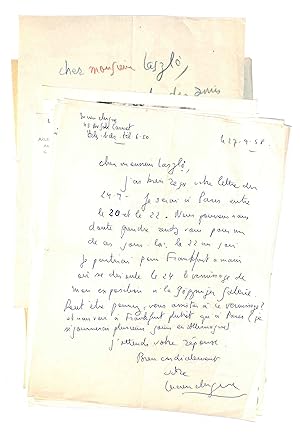 cher monsieur Laszlo,
le 27.9.58
cher monsieur Laszlo,
j'ai bien reçu votre lettre du
24-9- Je serai à Paris entre
le 20 et le 22. Nous pouvons sans
doute prendre rendez vous pour un
de ces jours là: le 22 au soir
Je partirai pour Frankfurt a main
où se déroule le 24 le vernissage de
mon exposition à la
Peut être pourrez vous assister à ce vernissage?
et me voir à Frankfurt plutôt qu'à Paris (je
séjournerai plusieurs jours en Allemagne)
j'attends votre réponse.
Bien cordialement
votre